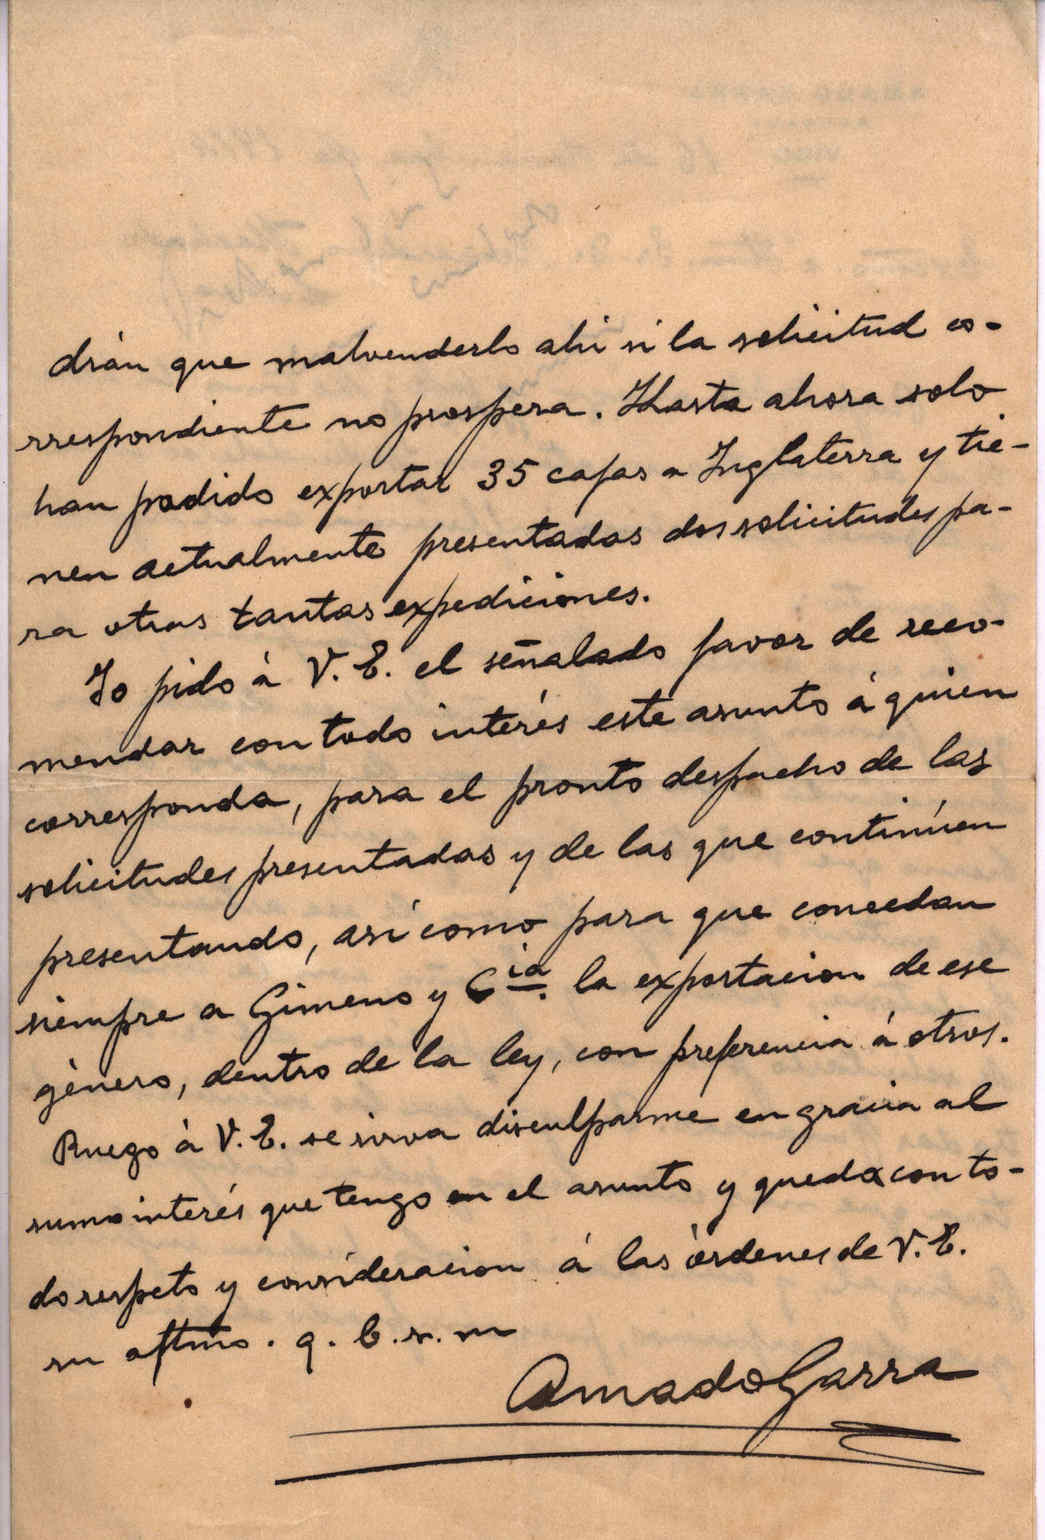 drán que malvenderlo ahi si la solicitud co-
rrespondiente no prospera. Hasta ahora solo
han podido exportar 35 cajas a Inglaterra y tie-
nen actualmente presentadas dos solicitudes pa-
ra otras tantas expediciones.
Yo pido á V. E. el señalado favor de reco-
mendar con todo interés este asunto á quien
corresponda, para el pronto despacho de las
solicitudes presentadas y de las que continúen
presentando, así como para que concedan
siempre a Gimeno y Cia. la exportacion de ese
género, dentro de la ley, con preferencia á otros.
Ruego á V. E. se sirva disculparme en gracia al
sumo interés que tengo en el asunto y queda con to-
do respeto y consideracion á las órdenes de V. E.
su aftmo. q. b. s. m
Amado Garra